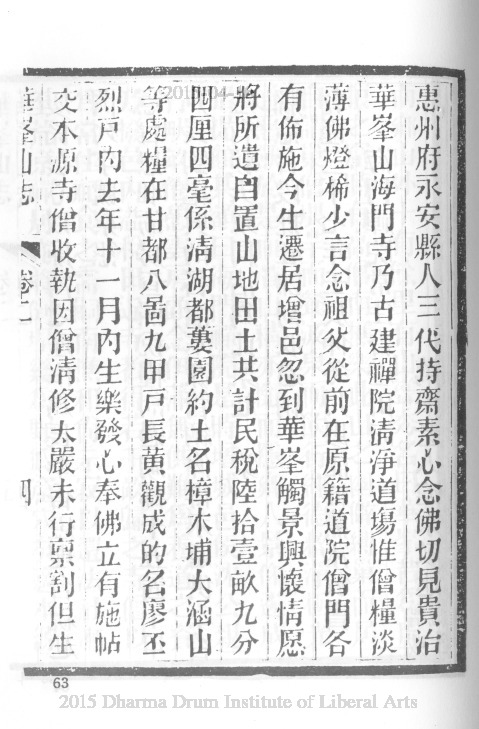 惠州府永安縣人三代持齋素心念佛切見貴治
華峯山海門寺乃古建禪院清淨道塲惟僧糧淡
薄佛燈稀少言念祖父從前在原籍道院僧門各
有佈施今生遷居增邑忽到華峯觸景興懷情愿
將所遺自置山地田土共計民稅陸拾壹畝九分
四厘四毫係清湖都蔞園約土名樟木埔大涵山
等處糧在甘都八啚九甲戶長黃觀成的名廖丕
烈戶內去年十一月內生樂發心奉佛立有施帖
交本源寺僧收執因僧清修太嚴未行稟割但生
華峯山志 卷二 四
63
2015 Dharma Drum Institute of Liberal Arts